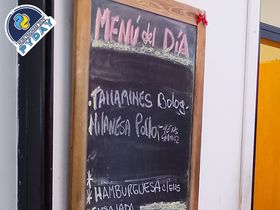 PYDAY
MENÚ del DÍA
.TALLARINES Bolog.
MILANESA Pollo,-
* HAMBURGUESA c/
ENSALADA